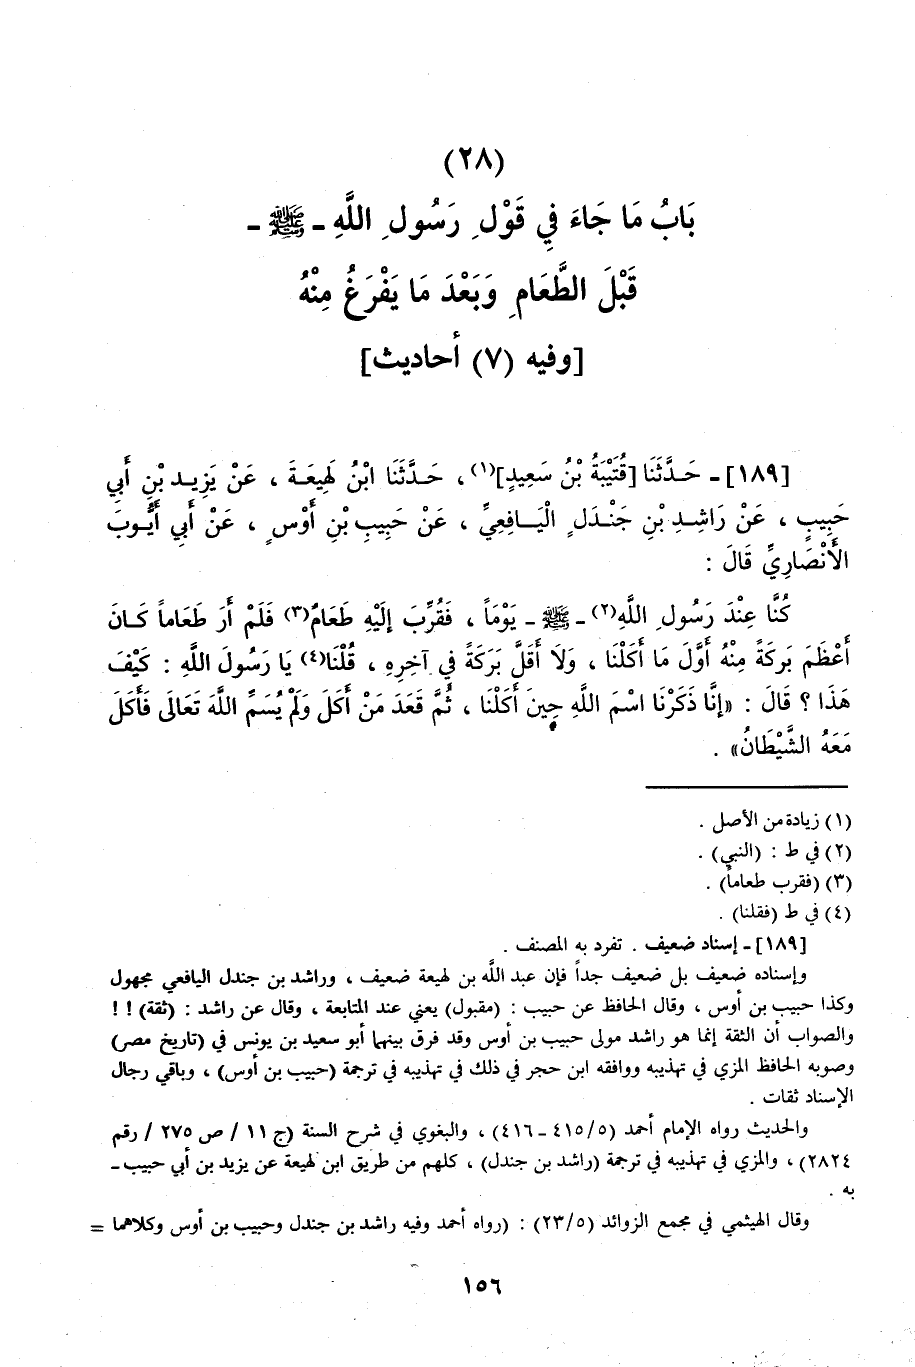 (٢٨)
بَابُ مَا جَاءَ فِي قَوْلِ رَسُولِ اللَّهِ - ﷺ -
قَبْلَ الطَّعَامِ وَبَعْدَ مَا يَفْرَغُ مِنْهُ
[وفيه (٧) أحاديث]
[١٨٩] - حَدَّثَنَا [قُتَيْبَةُ بْنُ سَعِيدٍ](١) ، حَدَّثَنَا ابْنُ لَهِيعَةَ ، عَنْ يَزِيدِ بْنِ أَبِي
حَبِيبٍ ، عَنْ رَاشِدِ بْنِ جَنْدَلٍ الْيَافِعِيِّ ، عَنْ حَبِيبِ بْنِ أَوْسٍ ، عَنْ أَبِي أَيُّوبَ
الأَنْصَارِيِّ قَالَ :
كُنَّا عِنْدَ رَسُولِ اللَّهِ(٢) - ﷺ - يَوْمَاً ، فَقُرِّبَ إِلَيْهِ طَعَامٌ(٣) فَلَمْ أَرَ طَعَاماً كَانَ
أَعْظَمَ بَرَكَةً مِنْهُ أَوَّلَ مَا أَكَلْنَا ، وَلاَ أَقَلَّ بَرَكَةً فِي آخِرِهِ ، قُلْنَا(٤) يَا رَسُولَ اللَّهِ : كَيْفَ
هَذَا ؟ قَالَ : «إِنَّا ذَكَرْنَا اسْمَ اللَّهِ حِينَ أَكَلْنَا ، ثُمَّ قَعَدَ مَنْ أَكَلَ وَلَمْ يُسَمِّ اللَّهَ تَعَالَى فَأَكَلَ
مَعَهُ الشَّيْطَانُ» .
(١) زيادة من الأصل .
(٢) في ط : (النبي) .
(٣) (فقرب طعاماً) .
(٤) في ط (فقلنا) .
[١٨٩] - إسناد ضعيف . تفرد به المصنف .
وإسناده ضعيف بل ضعيف جداً فإن عبد الله بن لهيعة ضعيف ، وراشد بن جندل اليافعي مجهول
وكذا حبيب بن أوس ، وقال الحافظ عن حبيب : (مقبول) يعني عند المتابعة ، وقال عن راشد : (ثقة) ! !
والصواب أن الثقة إنما هو راشد مولى حبيب بن أوس وقد فرق بينهما أبو سعيد بن يونس في (تاريخ مصر)
وصوبه الحافظ المزي في تهذيبه ووافقه ابن حجر في ذلك في تهذيبه في ترجمة (حبيب بن أوس) ، وباقي رجال
الإسناد ثقات .
والحديث رواه الإمام أحمد (٤١٥/٥ - ٤١٦) ، والبغوي في شرح السنة (ج ١١ / ص ٢٧٥ / رقم
٢٨٢٤) ، والمزي في تهذيبه في ترجمة (راشد بن جندل) ، كلهم من طريق ابن لهيعة عن يزيد بن أبي حبيب -
به .
وقال الهيثمي في مجمع الزوائد (٢٣/٥) : (رواه أحمد وفيه راشد بن جندل وحبيب بن أوس وكلاهما =
١٥٦